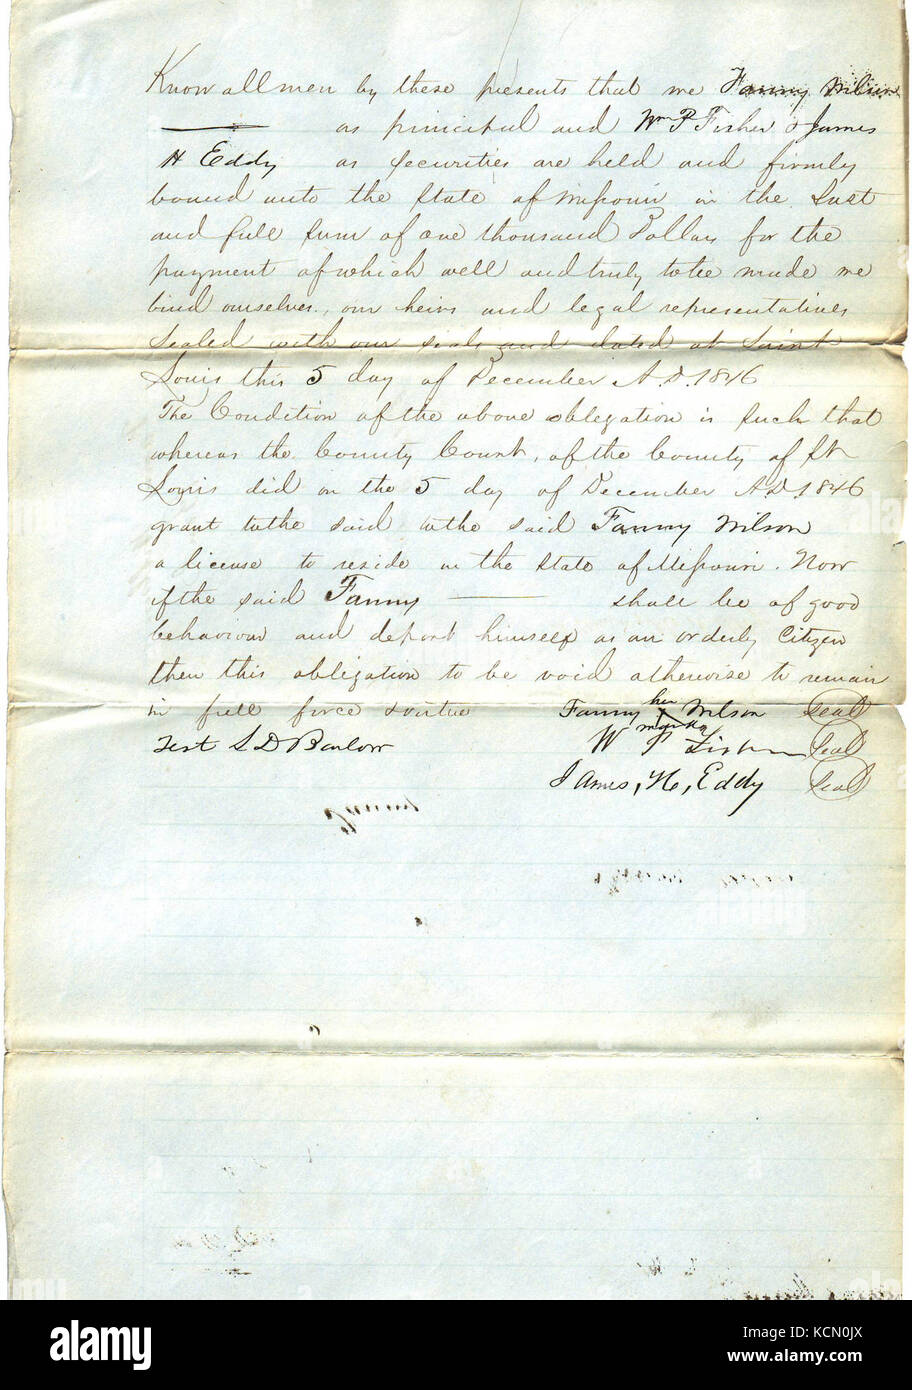 Know all men by these presents that we Fanny Wilson
as principal and Wm P Fisher & James
H Eddy as securities are held and firmly
bound unto the State of Missouri in the Just
and full sum of one thousand Dollars for the
payment of which well and truly to be made we
bind ourselves, our heirs and legal representatives
Sealed with our seals and dated at Saint
Louis this 5 day of December A.D. 1846
The Condition of the above obligation is such that
whereas the County Court, of the County of St
Louis did on the 5 day of December AD 1846
grant to the said to the said Fanny Wilson
a license to reside in the State of Missouri. Now
if the said Fanny shall be of good
behaviour and deport himself as an orderly Citizen
then this obligation to be void otherwise to remain
in full force & virtue Fanny her X mark Wilson Seal
Test S D Barlow W P Fisher Seal
James, H, Eddy Seal
alamy
Image ID: KCN0JX
www.alamy.com